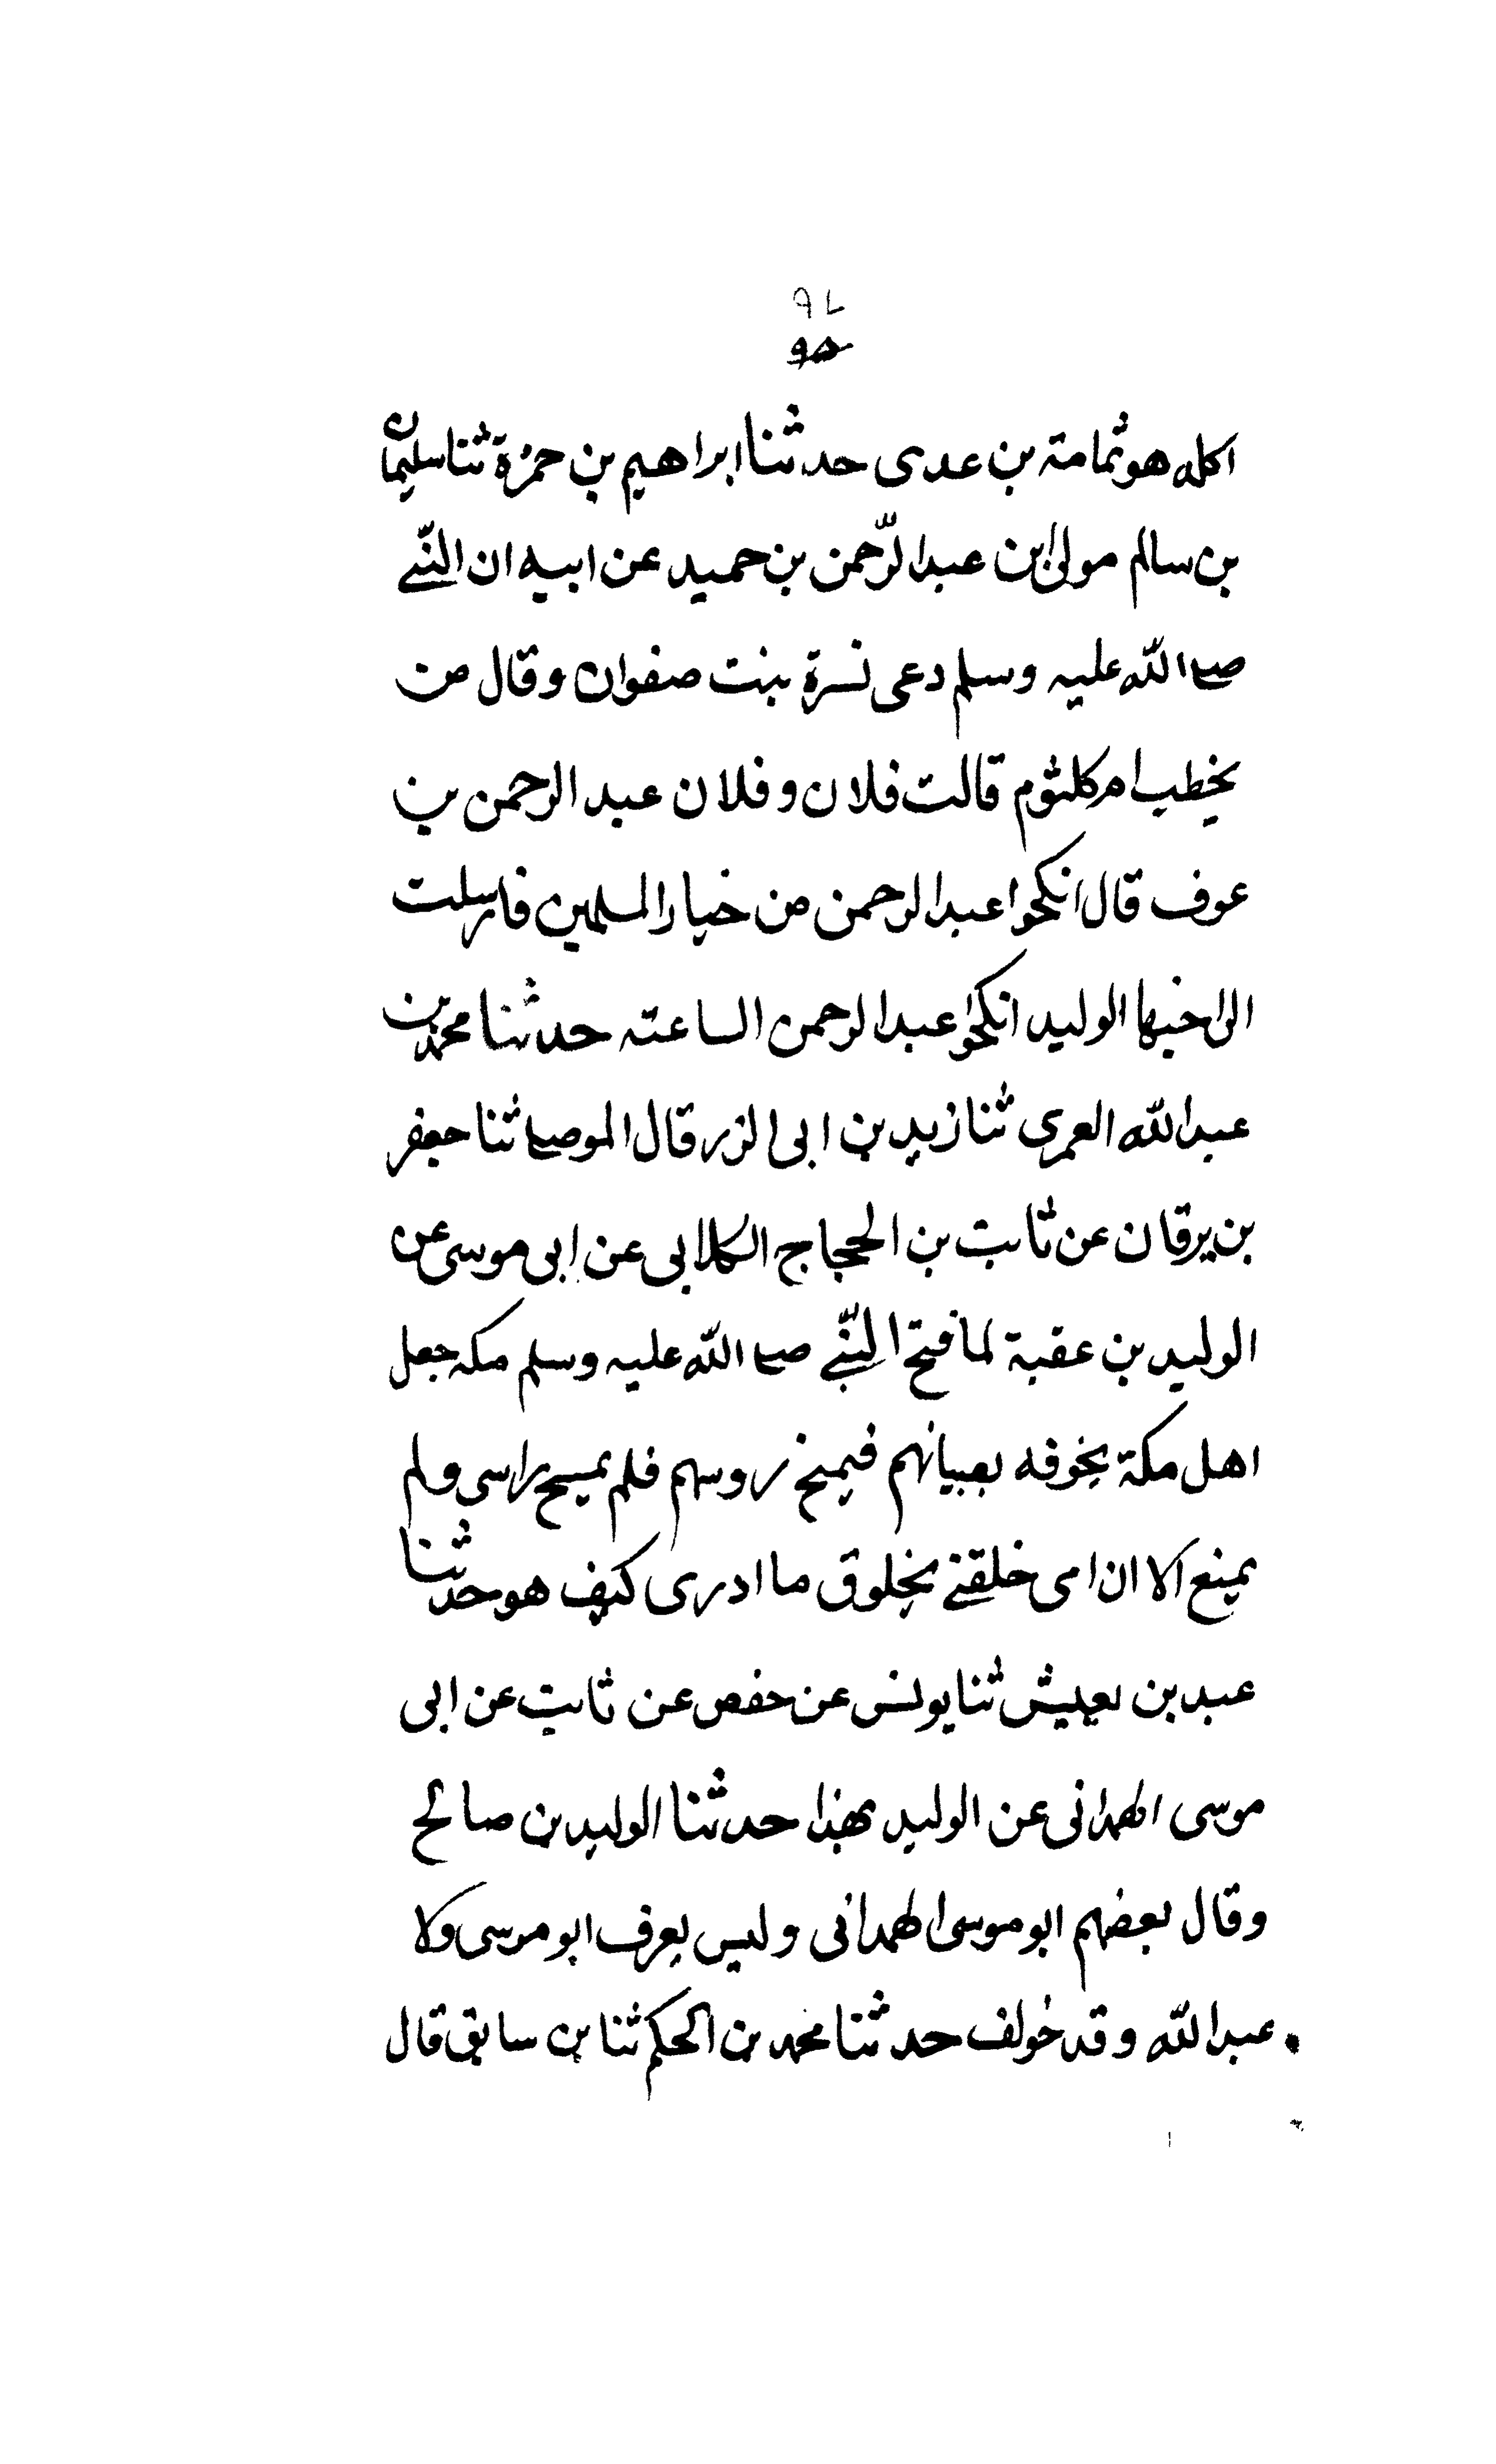 ٩٢
اكله هو ثمامة بن عدى حدثنا ابراهيم بن حمزة ثنا سليمان
بن سالم مولى ابن عبد الرّحمن بن حميد عن ابيه ان النّبى
صلى الله عليه وسلم دعى نسرة بنت صفوان وقال من
يخطب ام كلثوم قالت فلان وفلان عبد الرحمن بن
عوف قال انكحوا عبد الرحمن من خيار المسلمين فارسلت
الى اخيها الوليد انكحوا عبد الرحمن الساعته حدثنا محمد بن
عبد الله العمرى ثنا زيد بن ابى الزرقال الموصلى ثنا جعفر
بن يرقان عن ثابت بن الحجاج الكلابى عن ابى موسى عن
الوليد بن عقبة لما فتح النّبى صلى الله عليه وسلم مكه جعل
اهل مكة يخوفه بعبيانهم فيمنح روسهم فلم يمسح براسى ولم
يمنع الا ان امى خلقتى بخلوق ما ادرى كيف هو حدثنا
عبد بن يعيش ثنا يونس عن حفص عن ثابت عن ابى
موسى الهمدانى عن الوليد بهذا حدثنا الوليد بن صالح
وقال بعضهم ابو موسى الهمدانى وليس يعرف ابو موسى ولا
عبد الله وقد خولف حدثنا محمد بن الحكم ثنا بن سابق قال